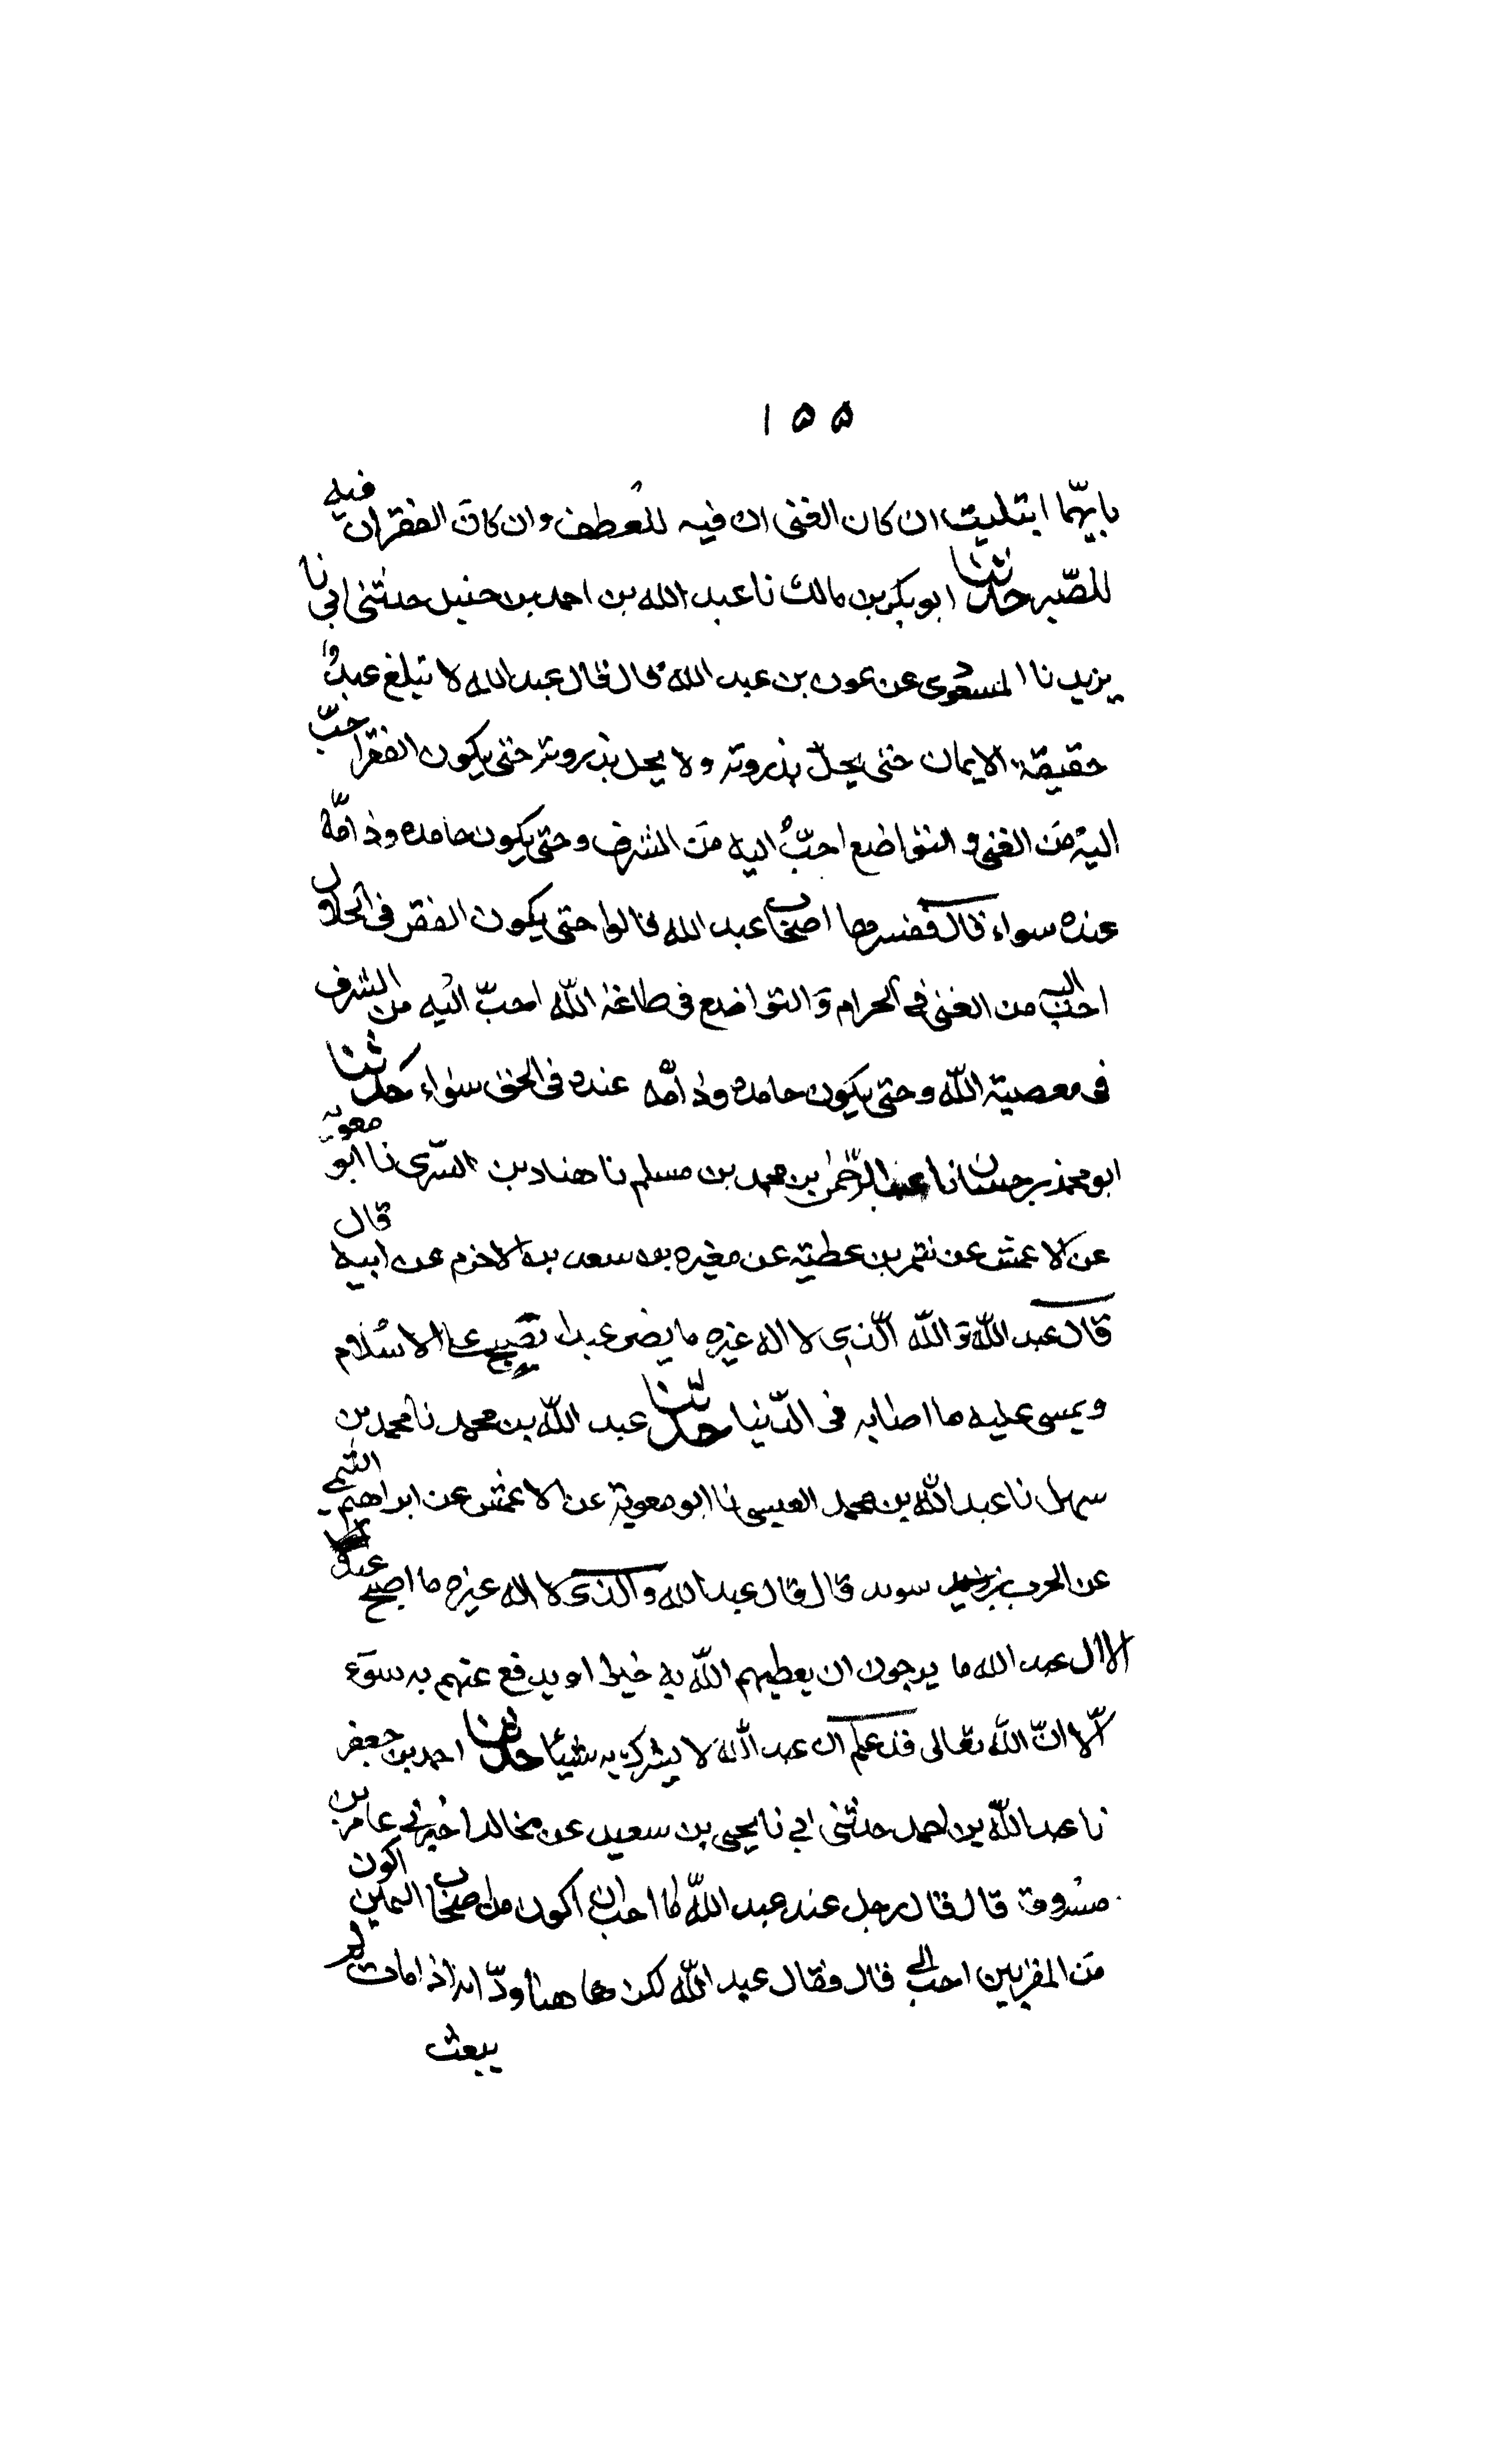 ١٥٥
بايهما ابتليت ان كان الغنى ان فيه للعطف وان كان الفقر ان فيه
للصبر حدثنا ابو بكر بن مالك نا عبد الله بن احمد بن حنبل حدثنى ابى نا
يزيد نا المسعودى عن عون بن عبد الله قال قال عبد الله لا تبلغ عبد
حقيقة الايمان حتى يحل بذروته ولا يحل بذروته حتى يكون الفقر احب
اليه من الغنى والتواضع احب اليه من الشرف وحتى يكون حامده وذامه
عنده سواء قال ففسرها اصحاب عبد الله قالوا حتى يكون الفقر فى الحلال
احب اليه من الغنى فى الحرام والتواضع فى طاعة الله احب اليه من الشرف
فى معصية الله وحتى يكون حامده وذامه عنده فى الحق سواء حدثنا
ابو محمد بن حسان نا عبد الرحمن بن محمد بن مسلم نا هناد بن السرى نا ابو معوية
عن الاعمش عن شمر بن عطية عن مغيره بن سعد بن الاخزم عن ابيه قال
قال عبد الله والله الذى لا اله غيره ما يضر عبدا يصبح على الاسلام
ويمسى عليه ما اصابه فى الدنيا حدثنا عبد الله بن محمد نا محمد بن
سهل نا عبد الله بن محمد العبسى نا ابو معوية عن الاعمش عن ابراهيم التيمى
عن الحرث بن سويد قال قال عبد الله والذى لا اله غيره ما اصبح عند
الال عبد الله ما يرجون ان يعطيهم الله به خيرا او يدفع عنهم به سوء
الا ان الله تعالى قد علم ان عبد الله لا يشرك به شيئا حدثنا احمد بن جعفر
نا عبد الله بن احمد حدثنى ابى نا يحيى بن سعيد عن مخالد اخبرنى عامر بن
مسروق قال قال رجل عند عبد الله ما احب ان اكون من اصحاب اليمين اكون
من المقربين احب الى قال فقال عبد الله لكن ها هنا ود انه اذا مات لم
يبعث